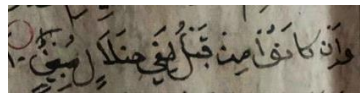 وَإِن كَانُوا مِن قَبْلُ لَفِي ضَلَالٍ مُّبِينٍ